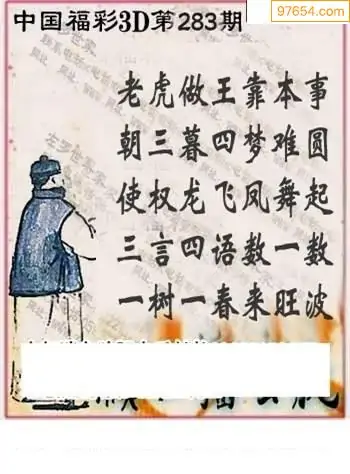 中国福彩3D第283期
97654.com
老虎做王靠本事
朝三暮四梦难圆
使权龙飞凤舞起
三言四语数一数
一树一春来旺波